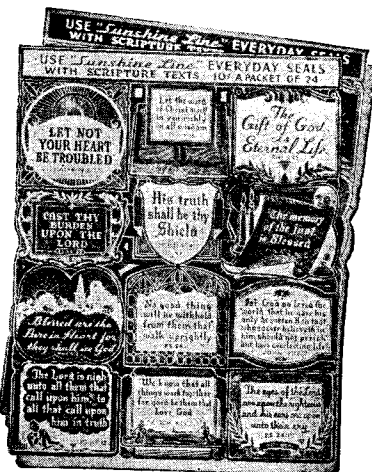 USE "Sunshine Line" EVERYDAY SEALS
WITH SCRIPTURE TEXTS
USE "Sunshine Line" EVERYDAY SEALS
WITH SCRIPTURE TEXTS 10¢ A PACKET OF 24
LET NOT
YOUR HEART
BE TROUBLED
Let the word
of Christ dwell
in you richly
in all wisdom
The
Gift of God
is
Eternal Life
CAST THY
BURDEN
UPON THE
LORD
His truth
shall be thy
Shield
The memory
of the Just
is Blessed
Blessed are the
Pure in Heart for
they shall see God
No good thing
will he withhold
from them that
walk uprightly
For God so loved the
world that he gave his
only begotten Son that
whosoever believeth in
him should not perish
but have everlasting life
The Lord is nigh
unto all them that
call upon him, to
all that call upon
him in truth
We know that all
things work together
for good to them that
love God
The eyes of the Lord
are upon the righteous
and his ears are open
unto their cry